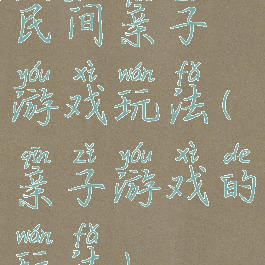 民间亲子
yóu xì wán fǎ
游戏玩法(
qīn zǐ yóu xì de
亲子游戏的
wán fǎ
玩法)